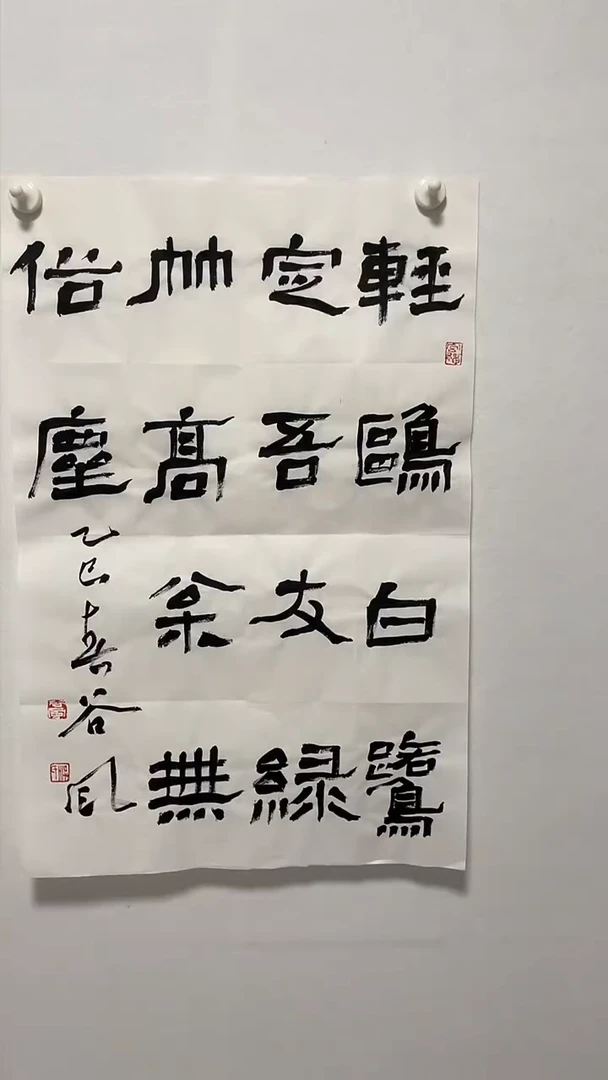 輕鷗白鷺
定吾友綠
竹高枀無
俗塵
乙巳春谷風